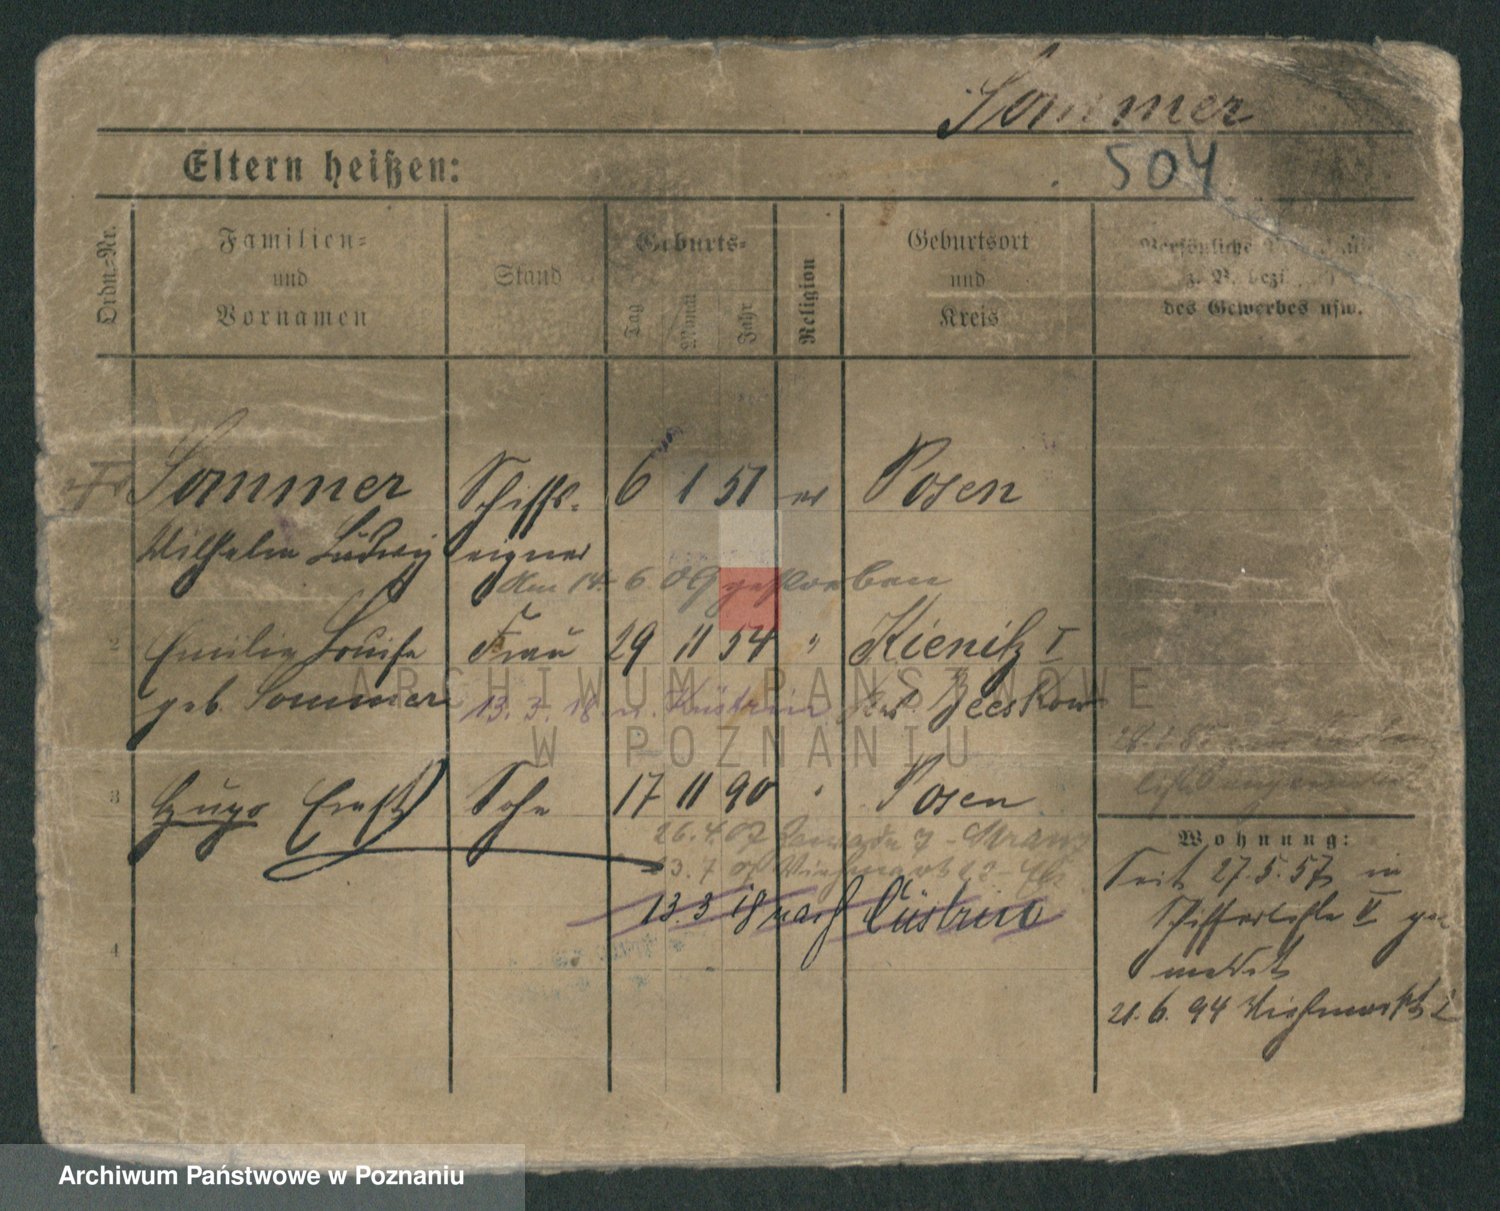 Sommer
504
Eltern heißen:
Ordn.-Nr.
Familien-
und
Vornamen
Stand
Geburts-
Tag
Monat
Jahr
Religion
Geburtsort
und
Kreis
Persönliche
z. B. bezügl.
des Gewerbes usw.
Sommer Schiffs- 6 1 51 ev Posen
Wilhelm Ludwig eigner
Am 14. 6. 09 gestorben
2 Emilie Louise Frau 29 11 54 " Kienitz I
geb. Sommer 13. 3. 18 n. Küstrin Kr. Beeskow
3 Hugo Ernst Sohn 17 11 90 " Posen
26. 4. 07
13. 7. 07 Viehmarkt
13. 3 18 nach Cüstrin
4
Wohnung:
Seit 27. 5. 57 in
Schifferliste V ge-
meldet
21. 6. 94 Viehmarkt 2
ARCHIWUM PAŃSTWOWE
W POZNANIU
Archiwum Państwowe w Poznaniu